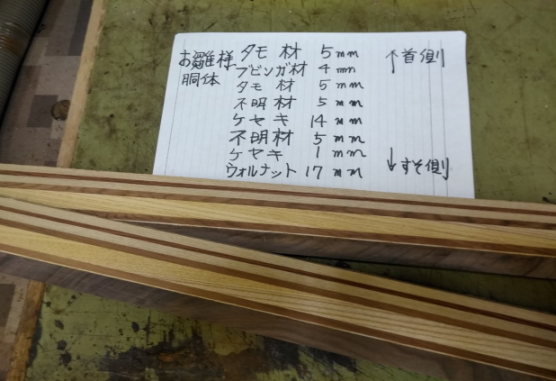 お雛様 タモ材 5mm ↑首側
胴体 ブビンガ材 4mm
タモ材 5mm
不明材 5mm
ケヤキ 14mm
不明材 5mm
ケヤキ 1mm ↓すそ側
ウォルナット 17mm